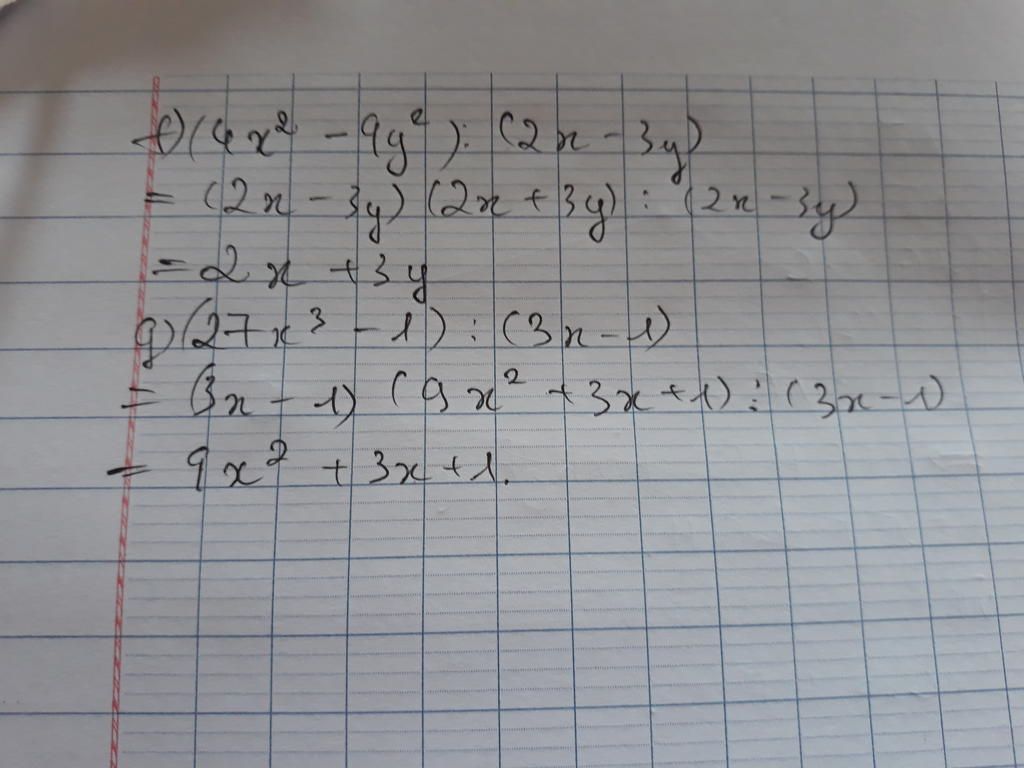 f) (4x² - 9y²) : (2x - 3y)
= (2x - 3y) (2x + 3y) : (2x - 3y)
= 2x + 3y
g) (27x³ - 1) : (3x - 1)
= (3x - 1) (9x² + 3x + 1) : (3x - 1)
= 9x² + 3x + 1.